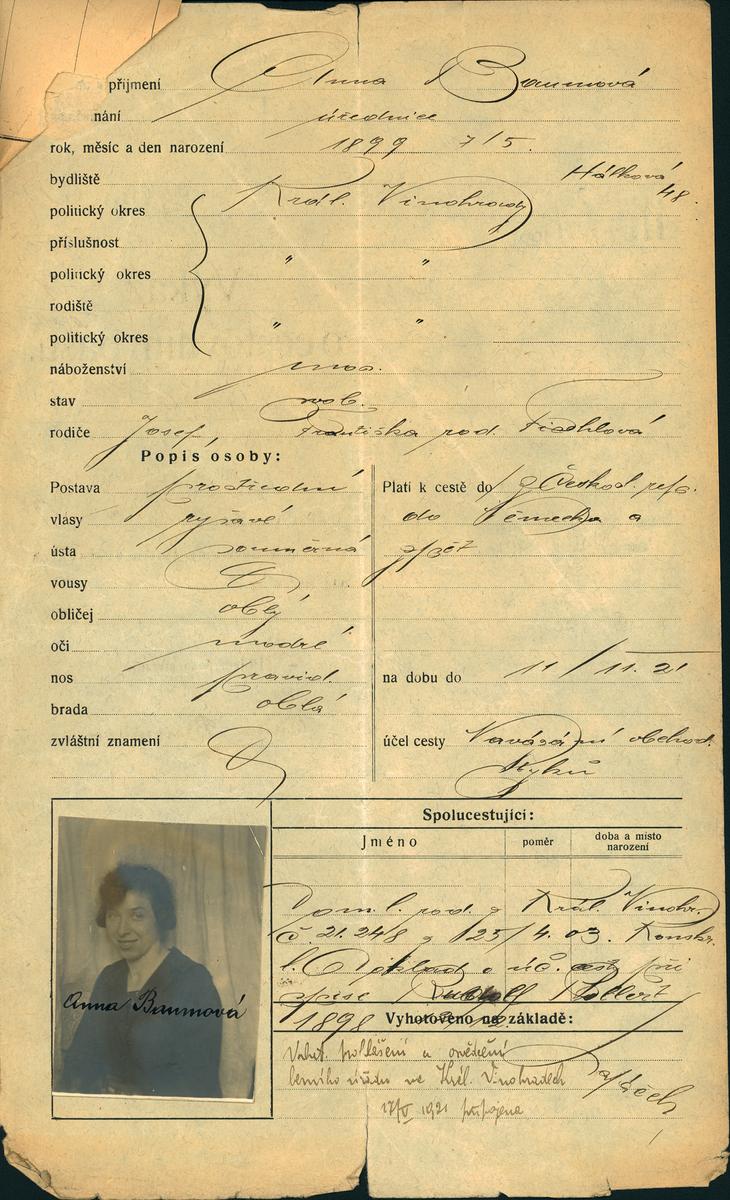 příjmení Anna Baumová
nání úřednice
rok, měsíc a den narození 1899 7/5.
bydliště Hálkova 48.
politický okres Král. Vinohrady
příslušnost
politický okres " "
rodiště
politický okres " "
náboženství mos.
stav svob.
rodiče Josef, Františka roz.
Popis osoby:
Postava prostřední
vlasy ryšavé
ústa souměrná
vousy
obličej oblý
oči modré
nos pravid.
brada oblá
zvláštní znamení
Platí k cestě do z Českosl. rep.
do Německa a
zpět
na dobu do 11/11. 21
účel cesty Navázání obchod.
styků
Spolucestující:
Jméno poměr doba a místo
narození
Dom. l. rod. z Král. Vinohr.
č. 21.248 z 123/4. 03. Konskr.
l. Doklad o úč. cesty při
spise Rudolf Kollert
1898
Vyhotoveno na základě:
prohlášení a osvědčení
berního úřadu ve Král. Vinohradech
17/V 1921 připojena
Anna Baumová